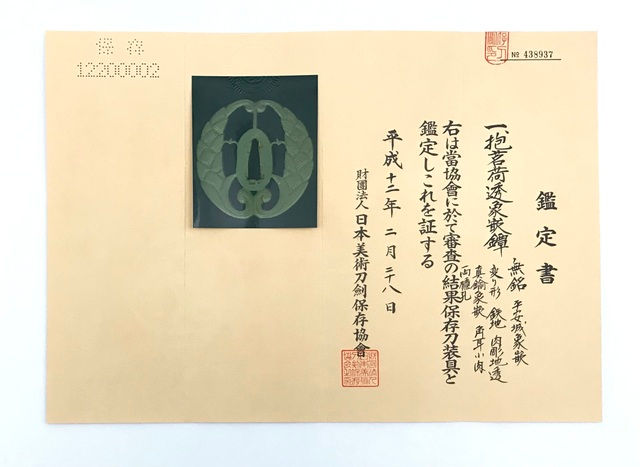 保存
12200002
№ 438937
鑑定書
一、抱茗荷透象嵌鐔
無銘 平安城象嵌
変り形 鉄地 肉彫地透
真鍮象嵌 角耳小肉
両櫃孔
右は當協會に於て審査の結果保存刀装具と
鑑定しこれを証する
平成十二年二月二十八日
財團法人 日本美術刀劍保存協會